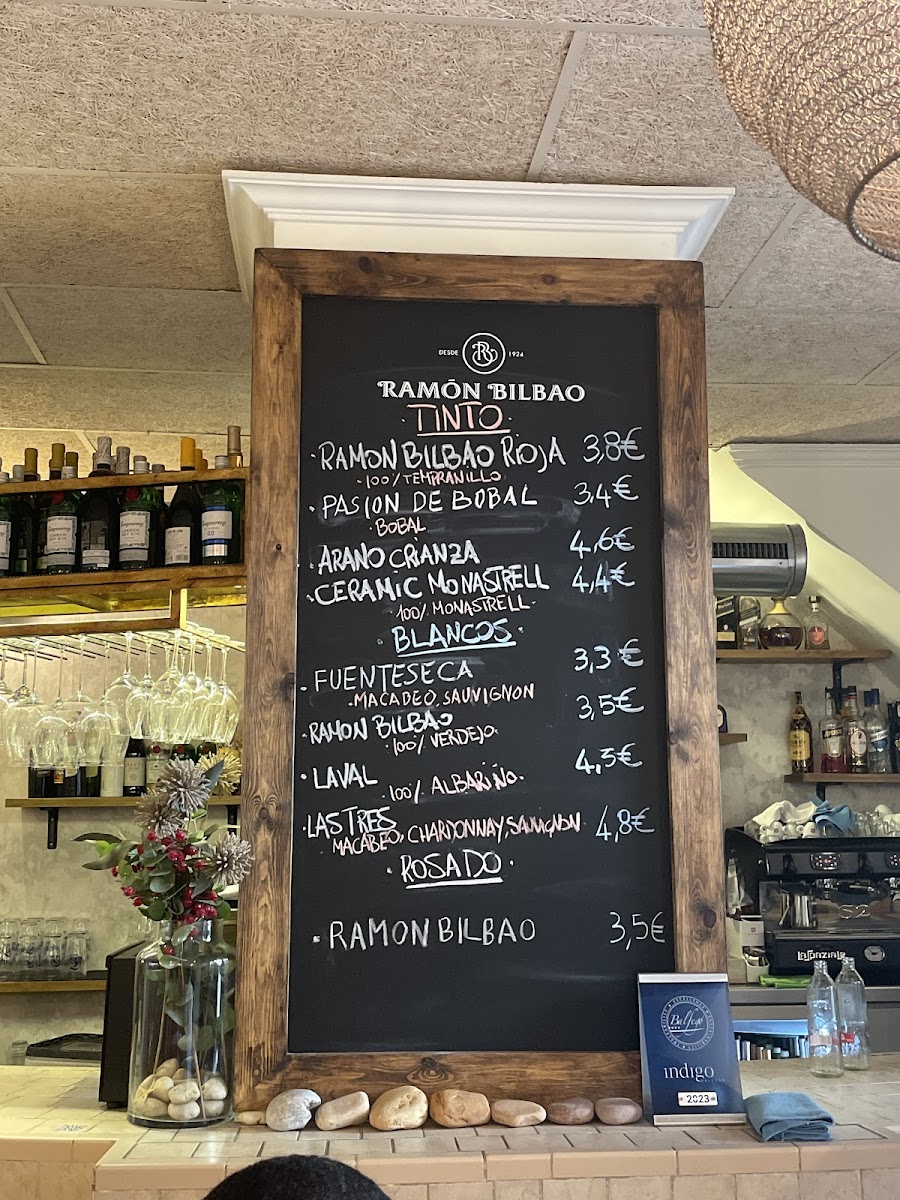 DESDE RB 1924
RAMÓN BILBAO
TINTO
· RAMON BILBAO RIOJA 3,8€
· 100% TEMPRANILLO
· PASION DE BOBAL 3,4€
· BOBAL
· ARANO CRIANZA 4,6€
· CERAMIC MONASTRELL 4,4€
· 100% MONASTRELL
· BLANCOS ·
· FUENTESECA 3,3€
· MACABEO, SAUVIGNON
· RAMON BILBAO 3,5€
· 100% VERDEJO
· LAVAL 4,5€
· 100% ALBARIÑO ·
· LAS TRES 4,8€
MACABEO, CHARDONNAY, SAUVIGNON
· ROSADO ·
· RAMON BILBAO 3,5€
Balfegó
indigo
2023
S2